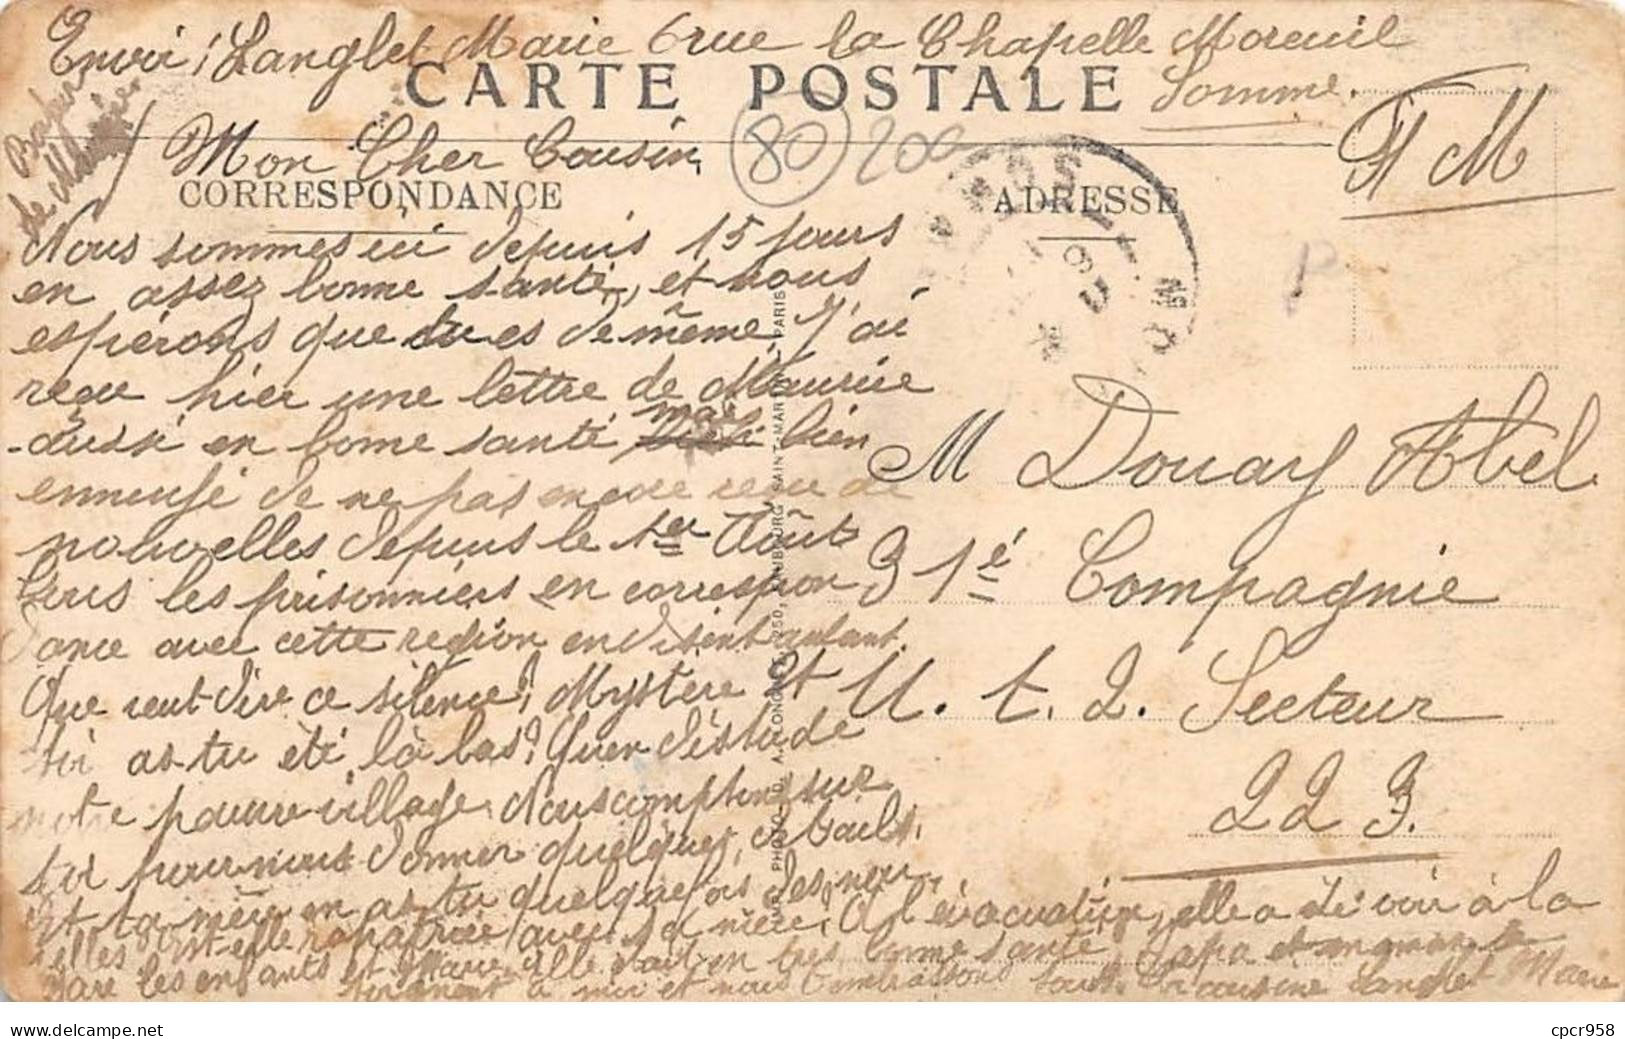 Envoi, Langlet Marie 6 rue la Chapelle Moreuil
Somme.
CARTE POSTALE
F M
de
Mon Cher Cousin,
80
200
CORRESPONDANCE
ADRESSE
Nous sommes ici depuis 15 jours
en assez bonne santé, et nous
espérons que tu es de même, J'ai
reçu hier une lettre de Maurice
aussi en bonne santé mais bien
ennuyé de ne pas encore reçu de
nouvelles depuis le 1er Août
tous les prisonniers en correspon
dance avec cette region en disent autant.
Que veut dire ce silence? Mystère Et
toi as-tu été là bas? Quen dis tu de
notre pauvre village. Nous comptons sur
toi pour nous donner quelques details.
Et ta mère en as tu quelquefois des nou
velles est-elle rapatriée avec sa mère. A l'évacuation, elle a été voir à la
gare les enfants et Marie, elle était en très bonne santé, Papa et
se joignent à moi et nous t'embrassons tous. Ta cousine Langlet Marie
M Douay Abel
31é Compagnie
U. t. 2. Secteur
223.
IMP. PHOTO-
250, FAUBOURG SAINT-MARTIN, PARIS
www.delcampe.net
cpcr958